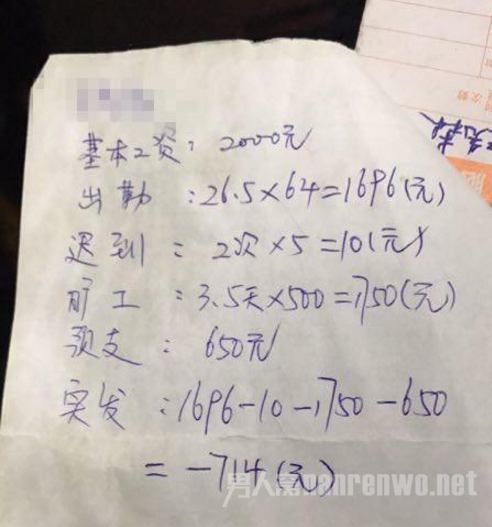 基本工资：2000元
出勤：26.5×64=1696(元)
迟到：2次×5=10(元)
旷工：3.5天×500=1750(元)
预支：650元
实发：1696-10-1750-650
=-714(元)
次数
男人窝nanrenwo.net